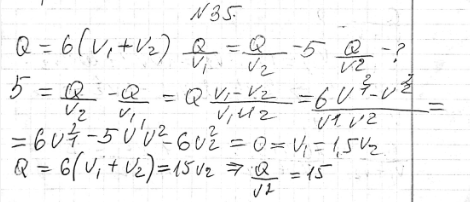 №35.
Q = 6(v₁+v₂) Q/v₁ = Q/v₂ - 5 Q/v2 - ?
5 = Q/v₂ - Q/v₁ = Q v₁-v₂/v₁v₂ = 6v₁²-v₂²/v1·v2 =
= 6v₁² - 5v₁v₂ - 6v₂² = 0 = v₁ = 1,5v₂
Q = 6(v₁+v₂) = 15v₂ ⇒ Q/v2 = 15